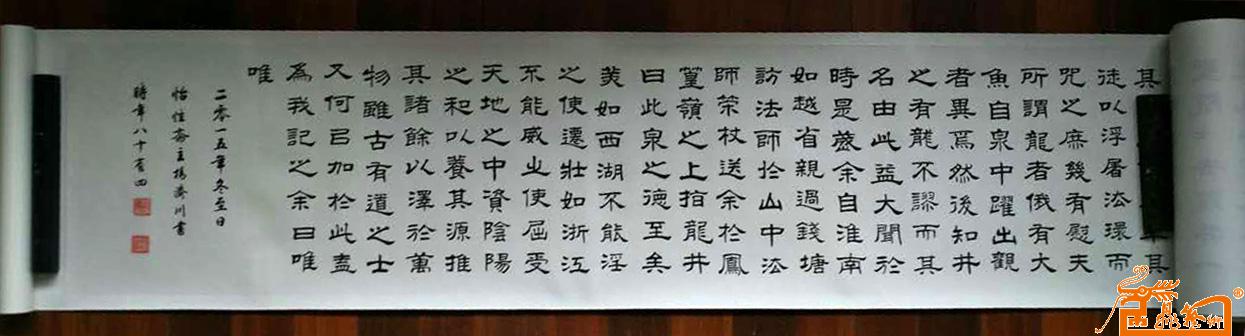 其其
徒以浮屠法環而
咒之庶幾有慰天
所謂龍者俄有大
魚自泉中躍出觀
者異焉然後知井
之有龍不謬而其
名由此益大聞於
時是歲余自淮南
如越省親過錢塘
訪法師於山中法
師策杖送余於鳳
篁嶺之上指龍井
曰此泉之德至矣
美如西湖不能淫
之使遷壯如浙江
不能威之使屈受
天地之中資陰陽
之和以養其源推
其諸餘以澤於萬
物雖古有道之士
又何以加於此盍
為我記之余曰唯
唯
二零一五年冬至日
怡性齋主楊濟川書
時年八十有四